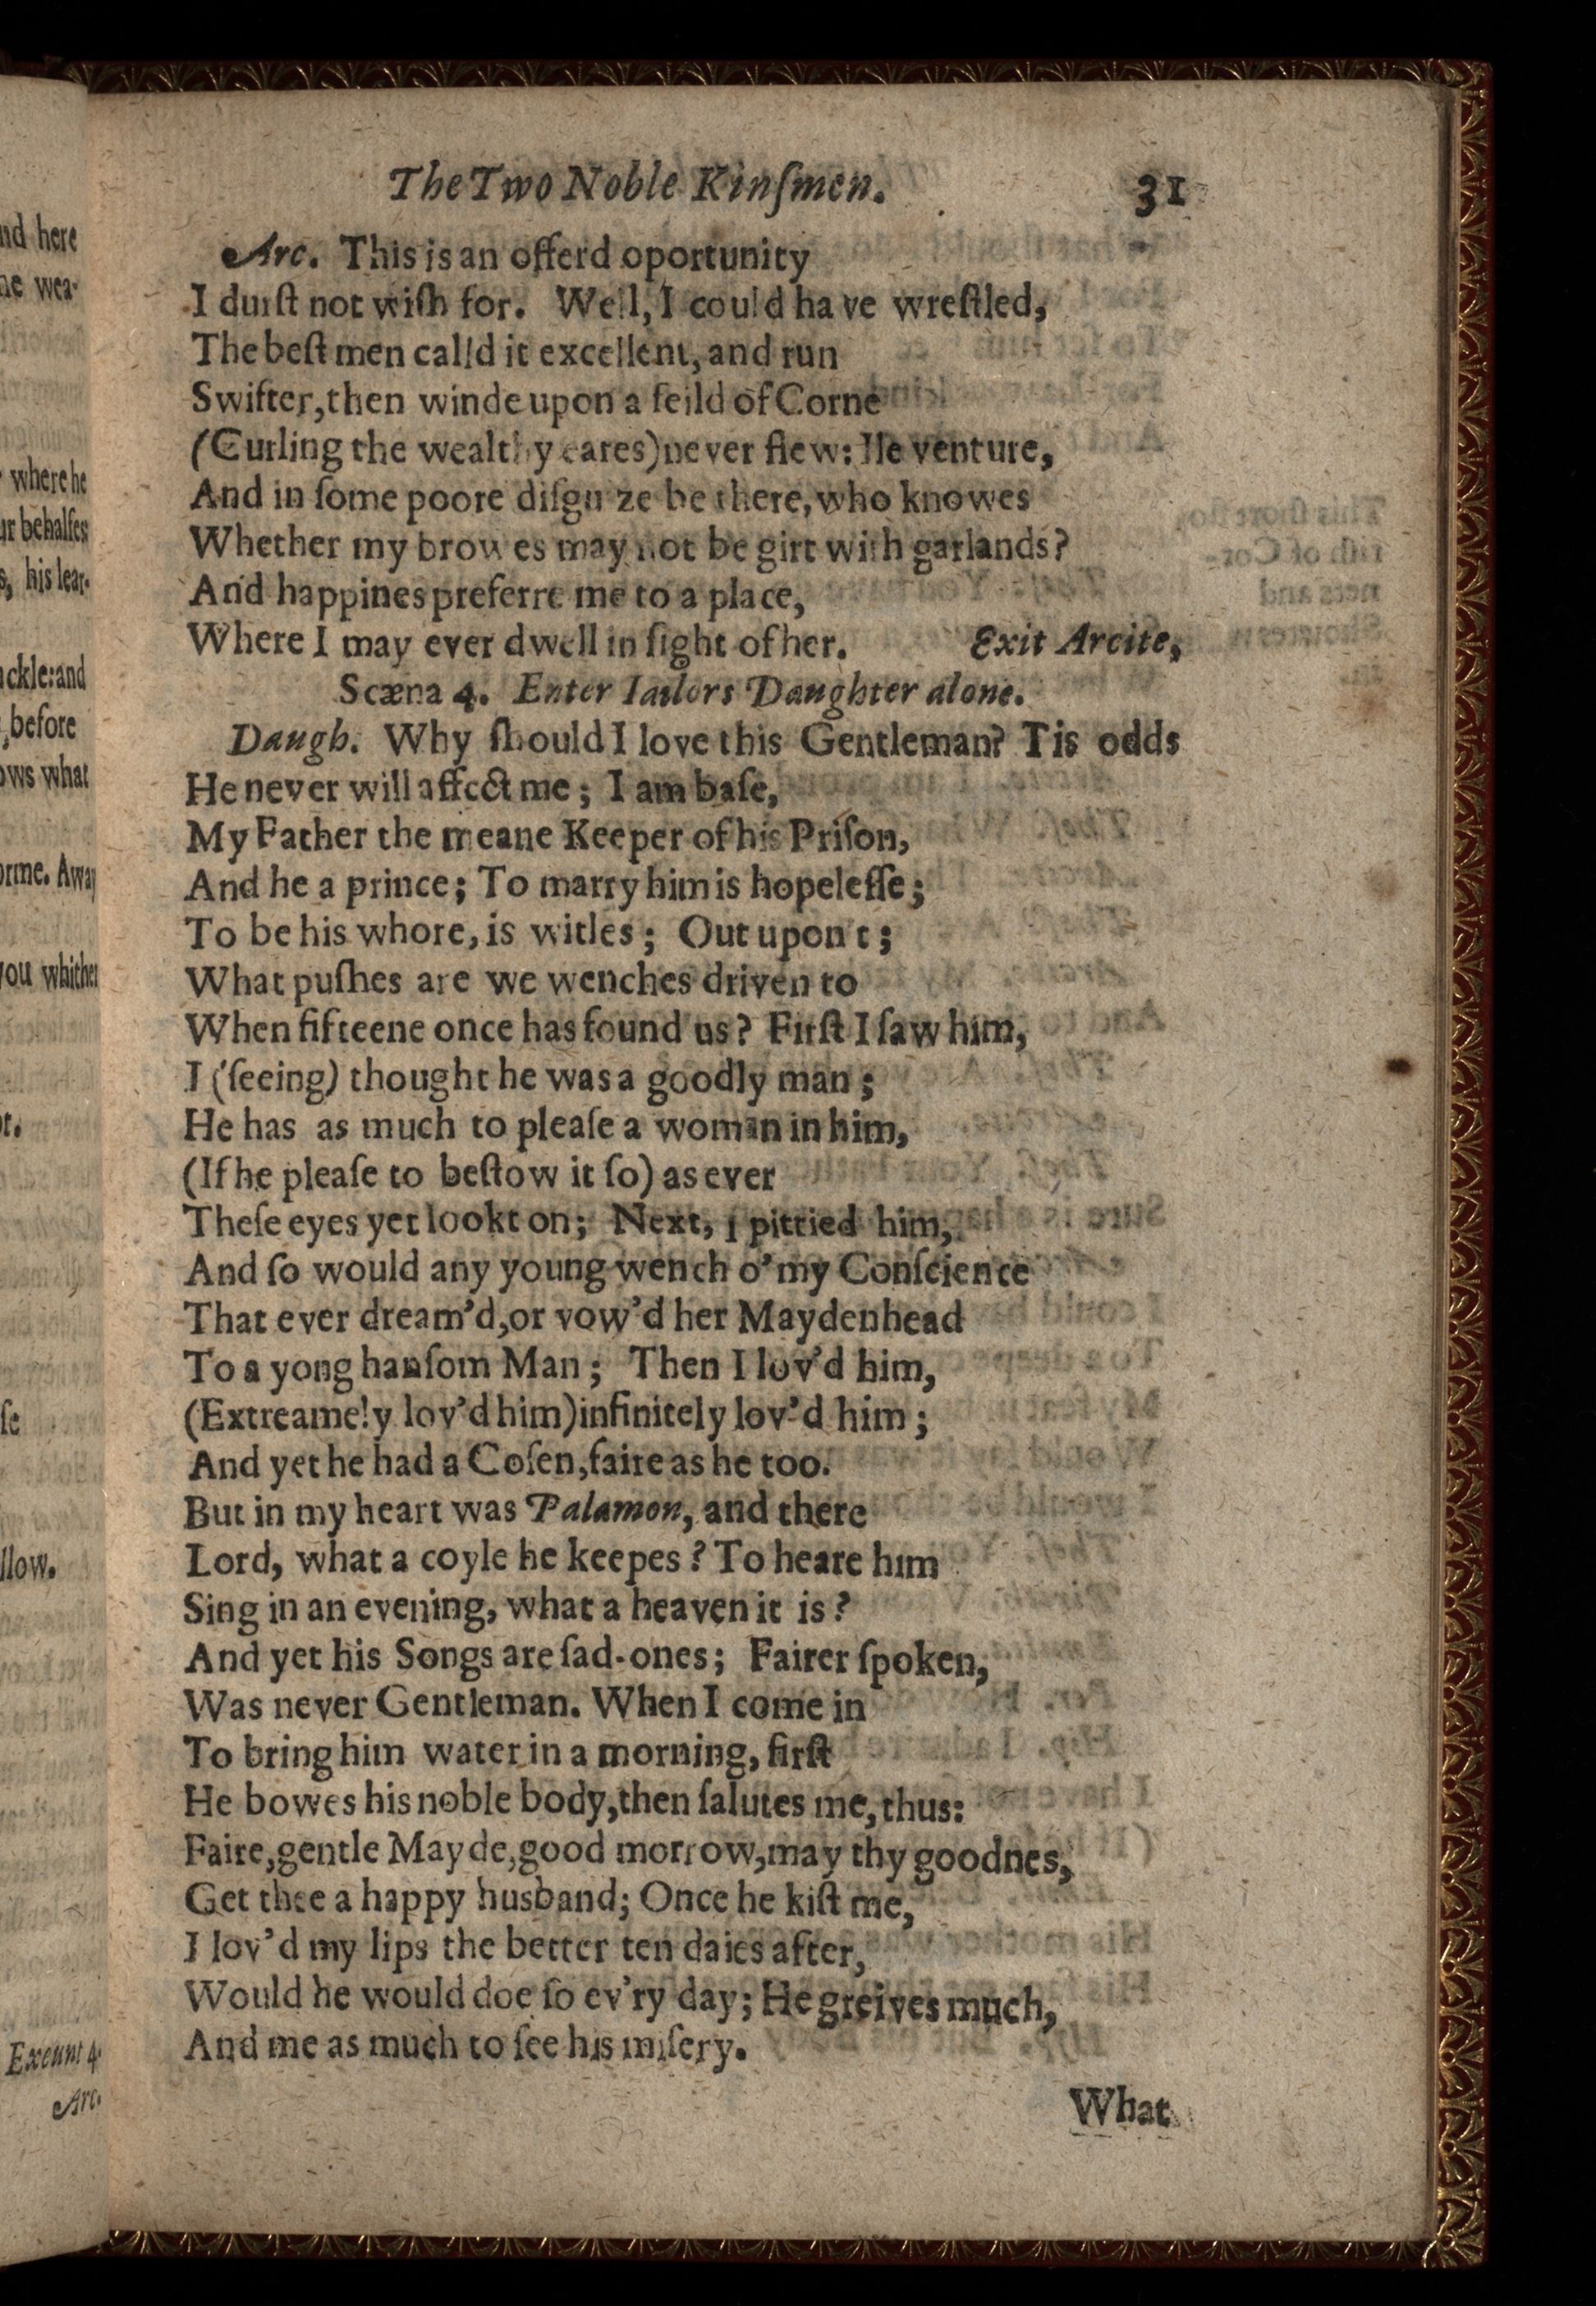 The Two Noble Kinſmen. 31
Arc. This is an offerd oportunity
I durſt not wiſh for. Well, I could have wreſtled,
The beſt men calld it excellent, and run
Swifter, then winde upon a feild of Corne
(Curling the wealthy eares) never flew: Ile venture,
And in ſome poore diſguize be there, who knowes
Whether my browes may not be girt with garlands?
And happines preferre me to a place,
Where I may ever dwell in ſight of her. Exit Arcite,
Scæna 4. Enter Iailors Daughter alone.
Daugh. Why ſhould I love this Gentleman? Tis odds
He never will affect me; I am baſe,
My Father the meane Keeper of his Priſon,
And he a prince; To marry him is hopeleſſe;
To be his whore, is witles; Out upon't;
What puſhes are we wenches driven to
When fifteene once has found us? Firſt I ſaw him,
I (ſeeing) thought he was a goodly man;
He has as much to pleaſe a woman in him,
(If he pleaſe to beſtow it ſo) as ever
Theſe eyes yet lookt on; Next, I pittied him,
And ſo would any young wench o' my Conſcience
That ever dream'd, or vow'd her Maydenhead
To a yong hanſom Man; Then I lov'd him,
(Extreamely lov'd him) infinitely lov'd him;
And yet he had a Coſen, faire as he too.
But in my heart was Palamon, and there
Lord, what a coyle he keepes? To heare him
Sing in an evening, what a heaven it is?
And yet his Songs are ſad-ones; Fairer ſpoken,
Was never Gentleman. When I come in
To bring him water in a morning, firſt
He bowes his noble body, then ſalutes me, thus:
Faire, gentle Mayde, good morrow, may thy goodnes,
Get thee a happy husband; Once he kiſt me,
I lov'd my lips the better ten daies after,
Would he would doe ſo ev'ry day; He greives much,
And me as much to ſee his miſery.
What
here
wea-
where he
behalfes
his lear-
and
before
what
Away
you whither
Exeunt 4.
Arc.